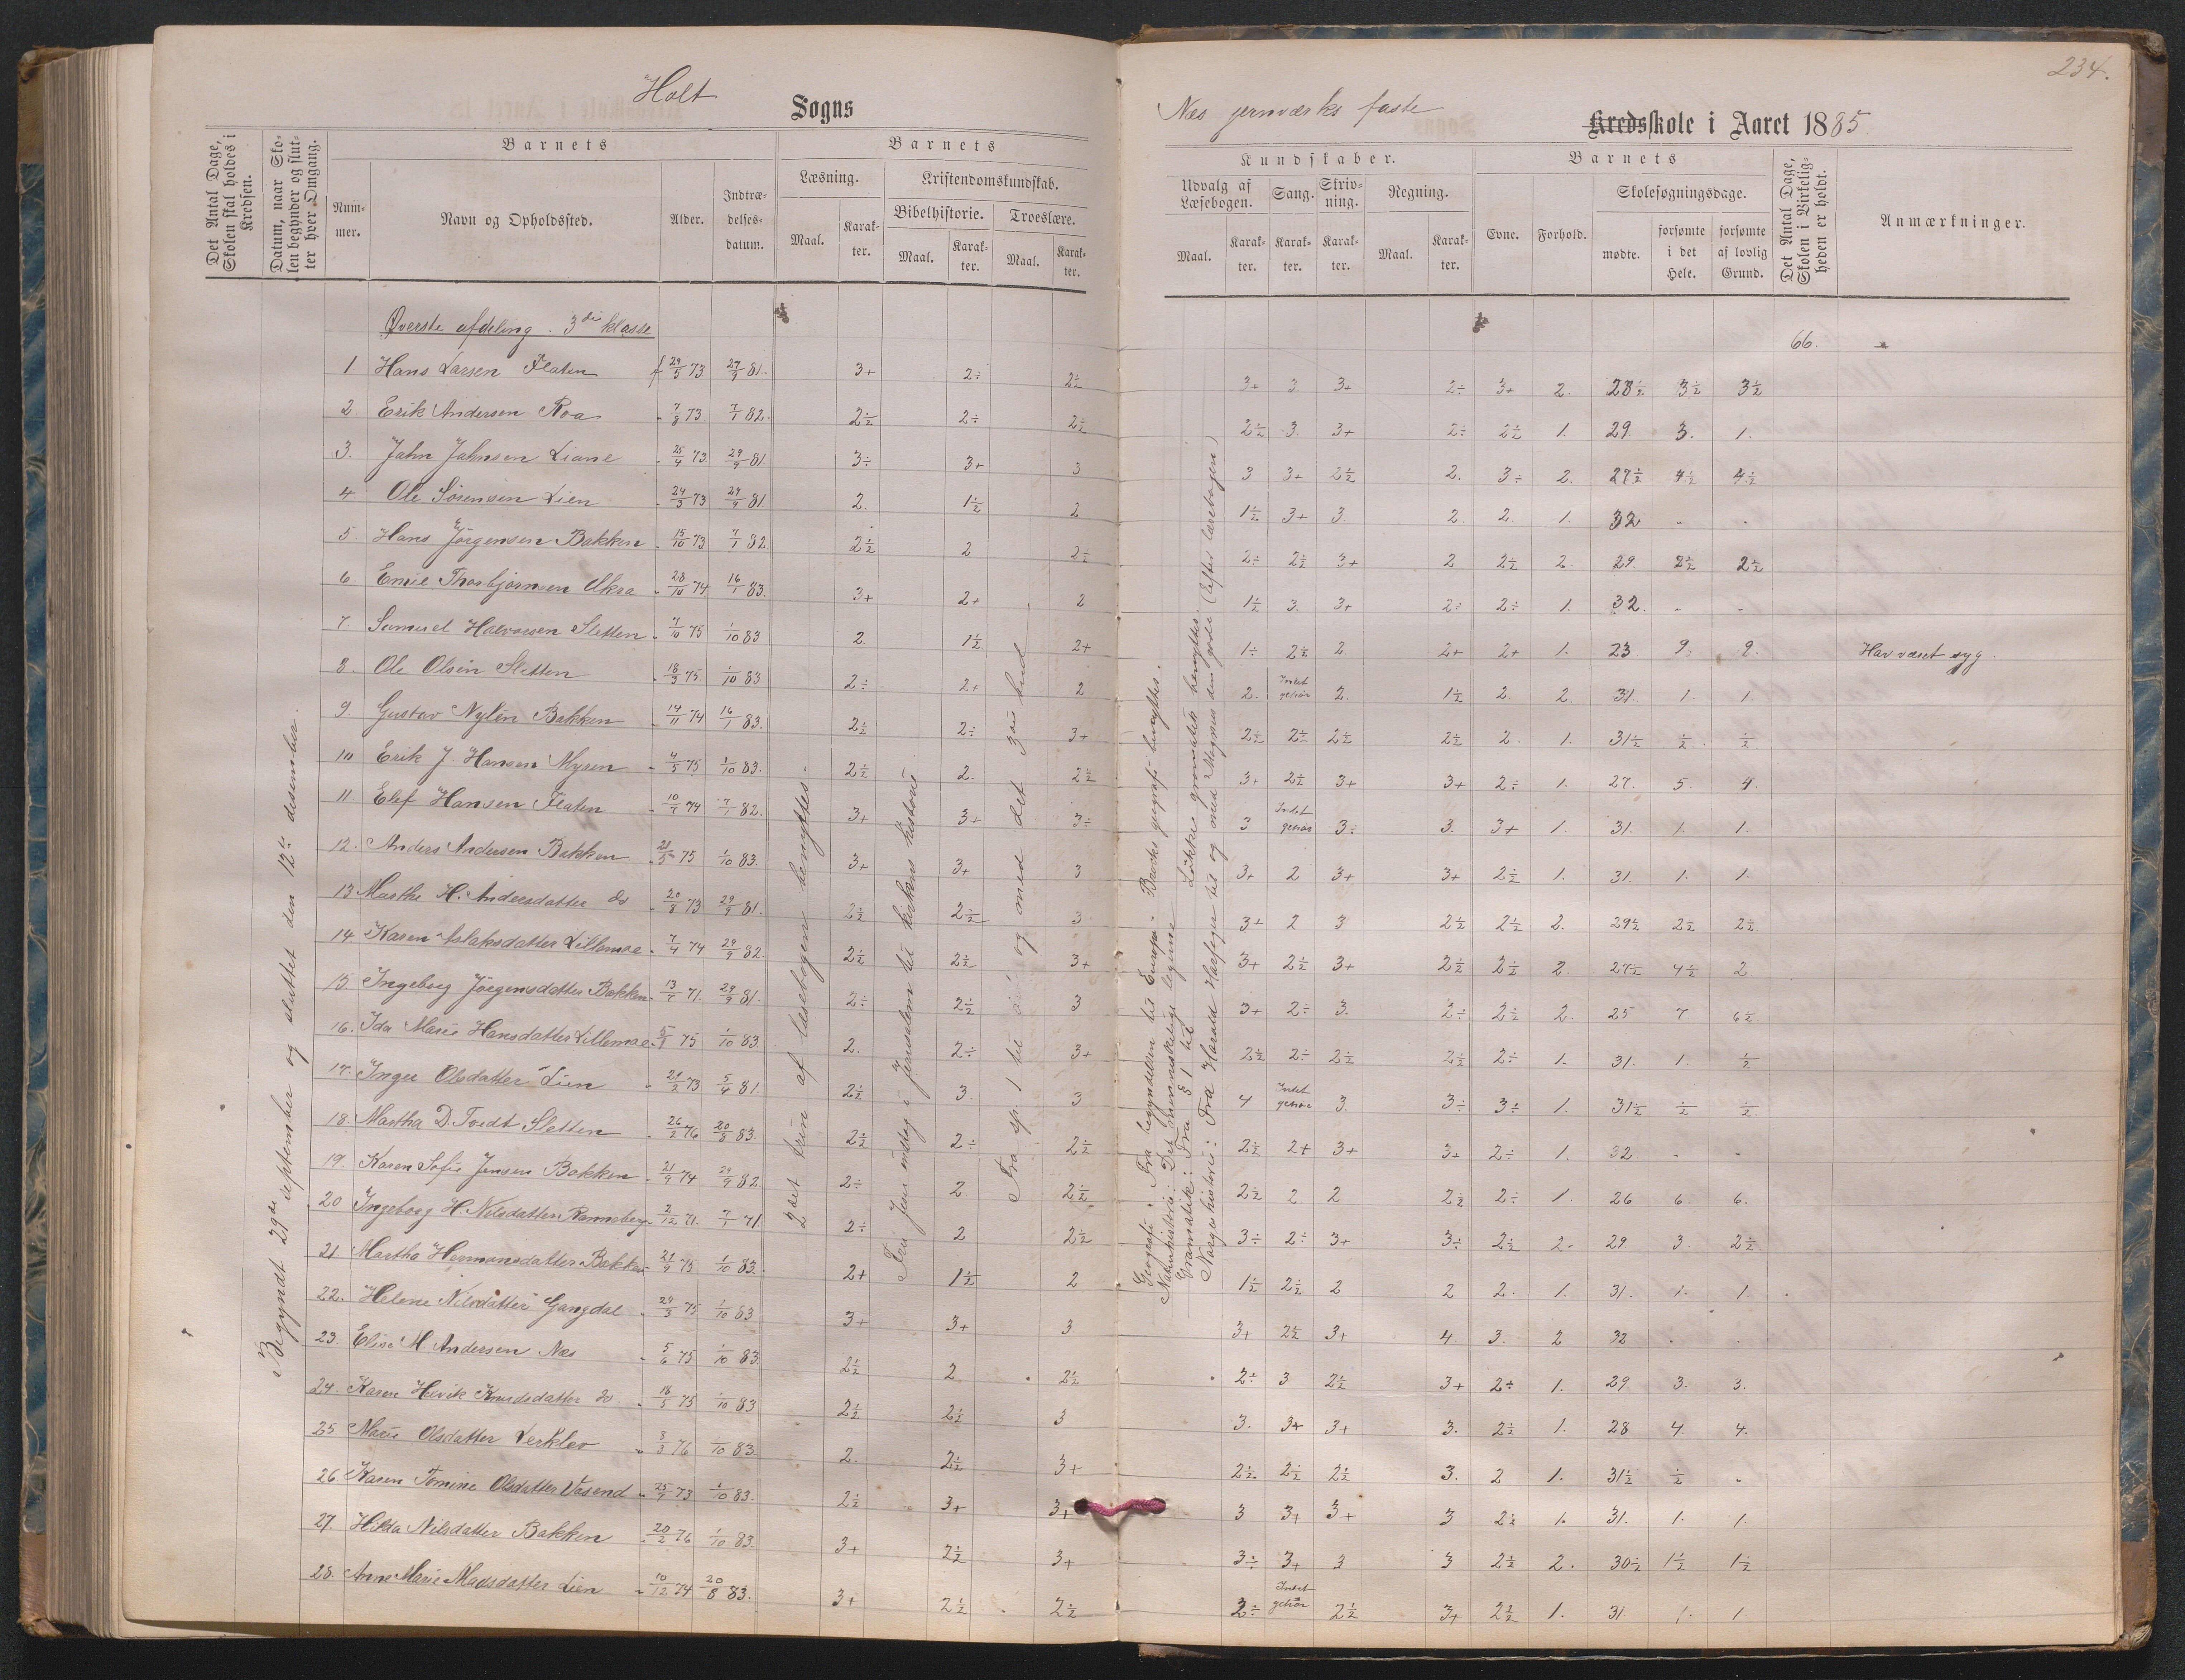 234.
Holt Sogns
Næs jernværks faste Kredsskole i Aaret 1885
Det Antal Dage, Skolen skal holdes i Kredsen.
Datum, naar Skolen begynder og slutter hver Omgang.
Barnets
Nummer.
Navn og Opholdssted.
Alder.
Indtrædelsesdatum.
Barnets
Læsning.
Maal.
Karakter.
Kristendomskundskab.
Bibelhistorie.
Maal.
Karakter.
Troeslære.
Maal.
Karakter.
Kundskaber.
Udvalg af Læsebogen.
Maal.
Karakter.
Sang.
Karakter.
Skrivning.
Karakter.
Regning.
Maal.
Karakter.
Barnets
Evne.
Forhold.
Skolesøgningsdage.
mødte.
forsømte i det Hele.
forsømte af lovlig Grund.
Det Antal Dage, Skolen i Virkeligheden er holdt.
Anmærkninger.
Øverste afdeling. 3die klasse
66.
1 Hans Larsen Flaten f 29/5 73 27/9 81. 3+ 2÷ 2½ 3+ 3 3+ 2÷ 3+ 2. 28½ 3½ 3½
2 Erik Andersen Roa " 7/8 73 7/1 82. 2½ 2÷ 2½ 2½ 3 3+ 2÷ 2½ 1. 29 3. 1.
3. Jahn Jahnsen Liane " 25/4 73 29/9 81 3÷ 3+ 3 3 3+ 2½ 2. 3÷ 2. 27½ 4½ 4½
4 Ole Sørensen Lien " 24/3 73 29/9 81 2. 1½ 2 1½ 3+ 3. 2. 2. 1. 32 - -
5. Hans Jørgensen Bakken " 15/10 73 7/1 82 2½ 2 2÷ 2÷ 2½ 3+ 2 2½ 2 29. 2½ 2½
6. Emil Thorbjørnsen Akra " 28/10 74 16/1 83. 3+ 2+ 2 1½ 3. 3+ 2÷ 2÷ 1. 32. - -
7. Samuel Halvorsen Sletten " 7/10 75 1/10 83 2. 1½ 2+ 1÷ 2½ 2 2+ 2+ 1. 23 9. 9. Har været syg.
8. Ole Olsen Sletten " 18/3 75. 1/10 83 2÷ 2+ 2 2. Intet gehør 2. 1½ 2. 2. 31. 1. 1.
9 Gustav Nylen Bakken " 14/11 74 16/1 83. 2½ 2÷ 3+ 2½ 2÷ 2½ 2½ 2. 1. 31½ ½ ½
10 Erik J. Hansen Myren " 4/5 75 1/10 83. 2½ 2. 2½ 3+ 2½ 3+ 3+ 2÷ 1. 27. 5. 4.
11. Elef Hansen Flaten " 10/7 74 7/1 82. 3+ 3+ 3÷ 3 Intet gehør 3÷ 3. 3+ 1. 31. 1. 1.
12. Anders Andersen Bakken " 21/5 75 1/10 83. 3+ 3+ 3 3+ 2 3+ 3+ 2½ 1. 31. 1. 1.
13 Marthe H. Andersdatter do " 20/8 73 29/9 81. 2½ 2½ 3 3+ 2 3 2½ 2½ 2. 29½ 2½ 2½
14. Karen Aslaksdatter Lillemoe " 7/4 74 29/9 82. 2½ 2½ 3+ 3+ 2½ 3+ 2½ 2½ 2. 27½ 4½ 2.
15. Ingeborg Jørgensdatter Bakken " 13/7 71. 29/9 81. 2÷ 2½ 3 3+ 2÷ 3. 2÷ 2½ 2. 25 7 6½
16. Ida Marie Hansdatter Lillemoe 5/8 75 1/10 83 2. 2÷ 3+ 2½ 2÷ 2½ 2½ 2÷ 1. 31. 1. ½
17. Inger Olsdatter Lien " 29/2 73 5/4 81. 2½ 3. 3 4 Intet gehør 3. 3÷ 3÷ 1. 31½ ½ ½
18. Martha D. Tvedt Sletten " 26/2 76 20/8 83. 2½ 2÷ 2½ 2½ 2+ 3+ 3+ 2÷ 1. 32 - -
19. Karen Sofie Jensen Bakken " 21/9 74 29/9 82. 2÷ 2 2½ 2½ 2 2 2½ 2÷ 1. 26 6. 6.
20 Ingeborg H. Nilsdatter Ramneberg " 2/12 71. 7/1 71. 2÷ 2 2½ 3÷ 2÷ 3+ 3÷ 2½ 2. 29 3. 2½
21. Martha Hermansdatter Bakken 21/9 75 1/10 83. 2+ 1½ 2 1½ 2½ 2 2 2. 1. 31. 1. 1.
22. Helene Nilsdatter Gangdal " 24/3 75 1/10 83 3+ 3+ 3 3+ 2½ 3+ 4 3. 2 32 . .
23. Elise M. Andersen Næs " 5/6 75 1/10 83. 2½ 2 2½ 2÷ 3 2½ 3+ 2÷ 1. 29. 3. 3.
24. Karen Hevik Knudsdatter do " 18/5 75 1/10 83 2½ 2½ 3 3. 3+ 3+ 3. 2½ 1. 28 4. 4.
25 Marie Olsdatter Lerklev " 8/3 76 1/10 83. 2. 2½ 3+ 2½ 2½ 2½ 3. 2 1. 31½ ½ -
26. Karen Tomine Olsdatter Vasend " 25/7 73 1/10 83. 2½ 3+ 3+ 3 3+ 3+ 3 2½ 1. 31. 1. 1.
27. Hilda Nilsdatter Bakken " 20/2 76 1/10 83. 3+ 2½ 3+ 3÷ 3+ 3 3 2½ 2. 30½ 1½ 1½
28. Anne Marie Madsdatter Lien " 10/12 74 20/8 83. 3+ 2½ 2½ 2÷ Intet gehør 2½ 3+ 2½ 1. 31 1. 1.
Begyndt 29de september og sluttet den 12te desember.
2det trin af læsebogen benyttes.
Fra Jesu indtog i Jerusalem til kirkens historie
Fra sp. 1 til og med det 3die bud
Geografi: Fra begyndelsen til Europa. geografi benyttes.
Naturhistorie: Det menneskelige legeme
Gramatik: Fra § 1 til Løkkes gramatik benyttes.
Norges historie: Fra Harald Harfagre til og med Magnus den gode (Efter læsebogen)